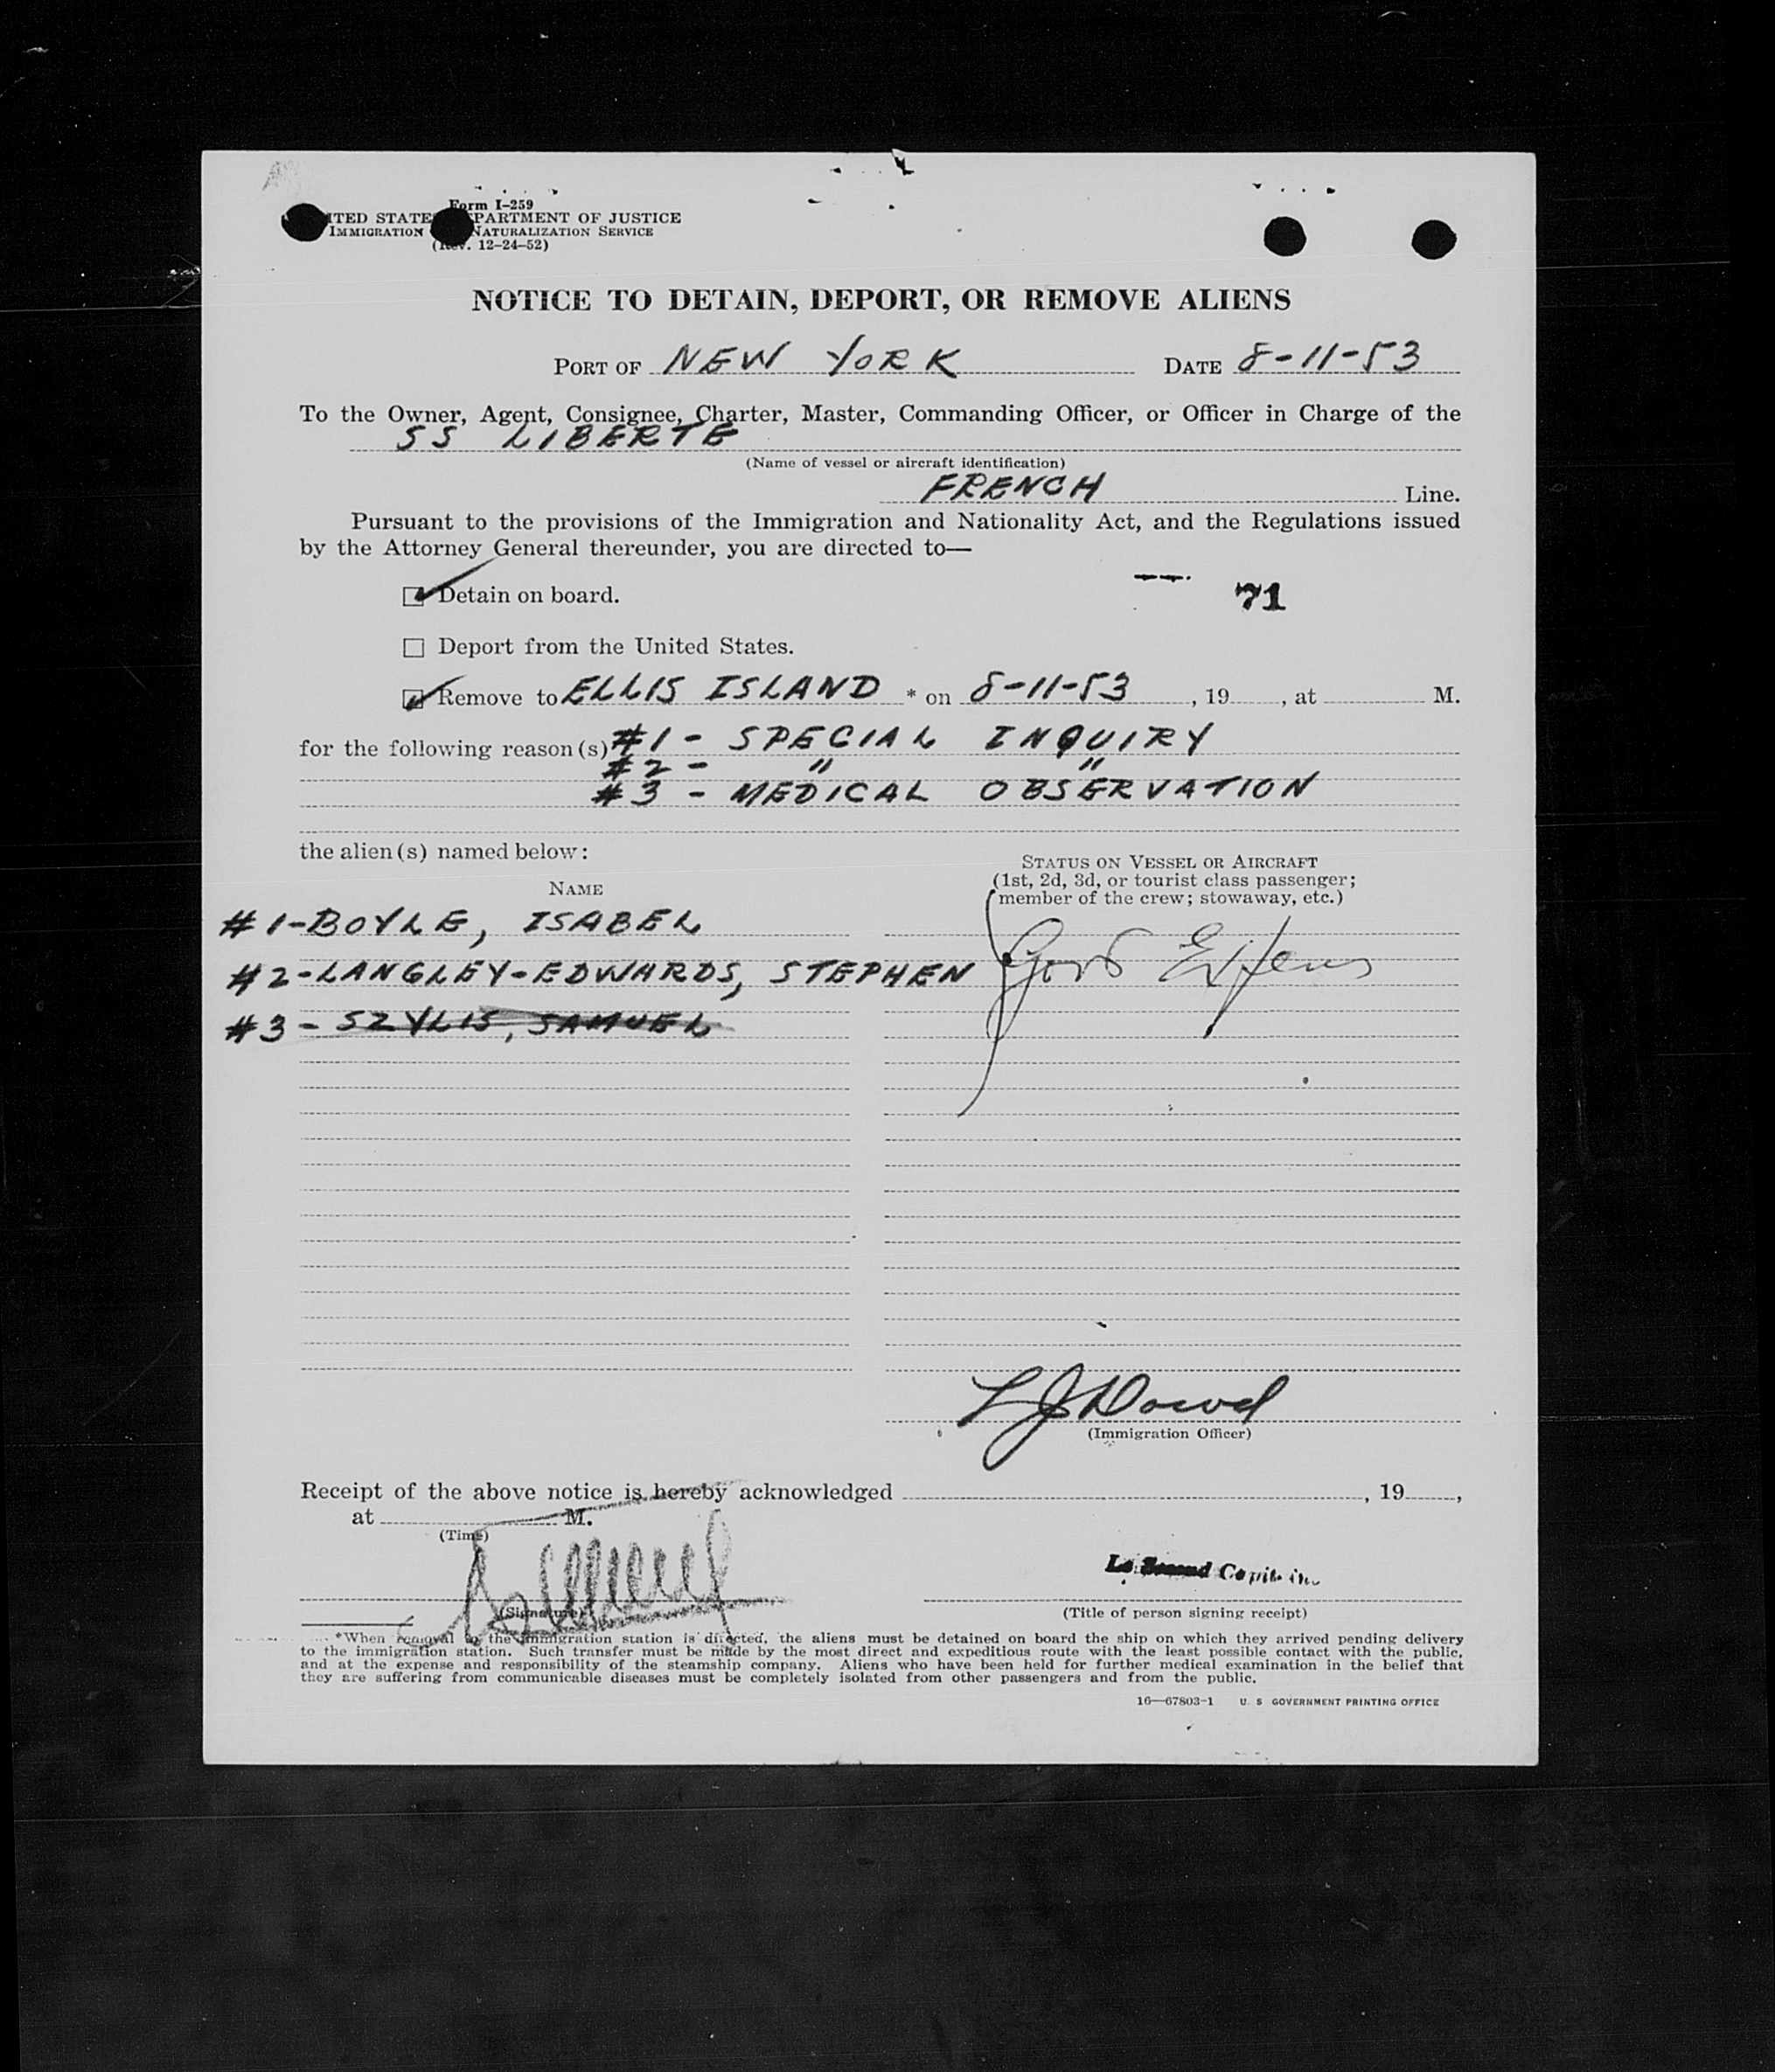 Form I-259
ITED STATE PARTMENT OF JUSTICE
IMMIGRATION NATURALIZATION SERVICE
(Rev. 12-24-52)
NOTICE TO DETAIN, DEPORT, OR REMOVE ALIENS
PORT OF NEW YORK DATE 8-11-53
To the Owner, Agent, Consignee, Charter, Master, Commanding Officer, or Officer in Charge of the
SS LIBERTE
(Name of vessel or aircraft identification)
FRENCH Line.
Pursuant to the provisions of the Immigration and Nationality Act, and the Regulations issued
by the Attorney General thereunder, you are directed to—
Detain on board.
71
Deport from the United States.
Remove to ELLIS ISLAND * on 8-11-53, 19, at M.
for the following reason(s) #1 - SPECIAL INQUIRY
#2 - " "
#3 - MEDICAL OBSERVATION
the alien(s) named below:
STATUS ON VESSEL OR AIRCRAFT
(1st, 2d, 3d, or tourist class passenger;
member of the crew; stowaway, etc.)
NAME
#1-BOYLE, ISABEL
#2-LANGLEY-EDWARDS, STEPHEN
Gov't
#3 - SZYLIS, SAMUEL
L J Dowd
(Immigration Officer)
Receipt of the above notice is hereby acknowledged , 19 ,
at M.
(Time)
Capitaine
(Signature)
(Title of person signing receipt)
*When removal to the immigration station is directed, the aliens must be detained on board the ship on which they arrived pending delivery
to the immigration station. Such transfer must be made by the most direct and expeditious route with the least possible contact with the public,
and at the expense and responsibility of the steamship company. Aliens who have been held for further medical examination in the belief that
they are suffering from communicable diseases must be completely isolated from other passengers and from the public.
16—67803-1 U. S GOVERNMENT PRINTING OFFICE